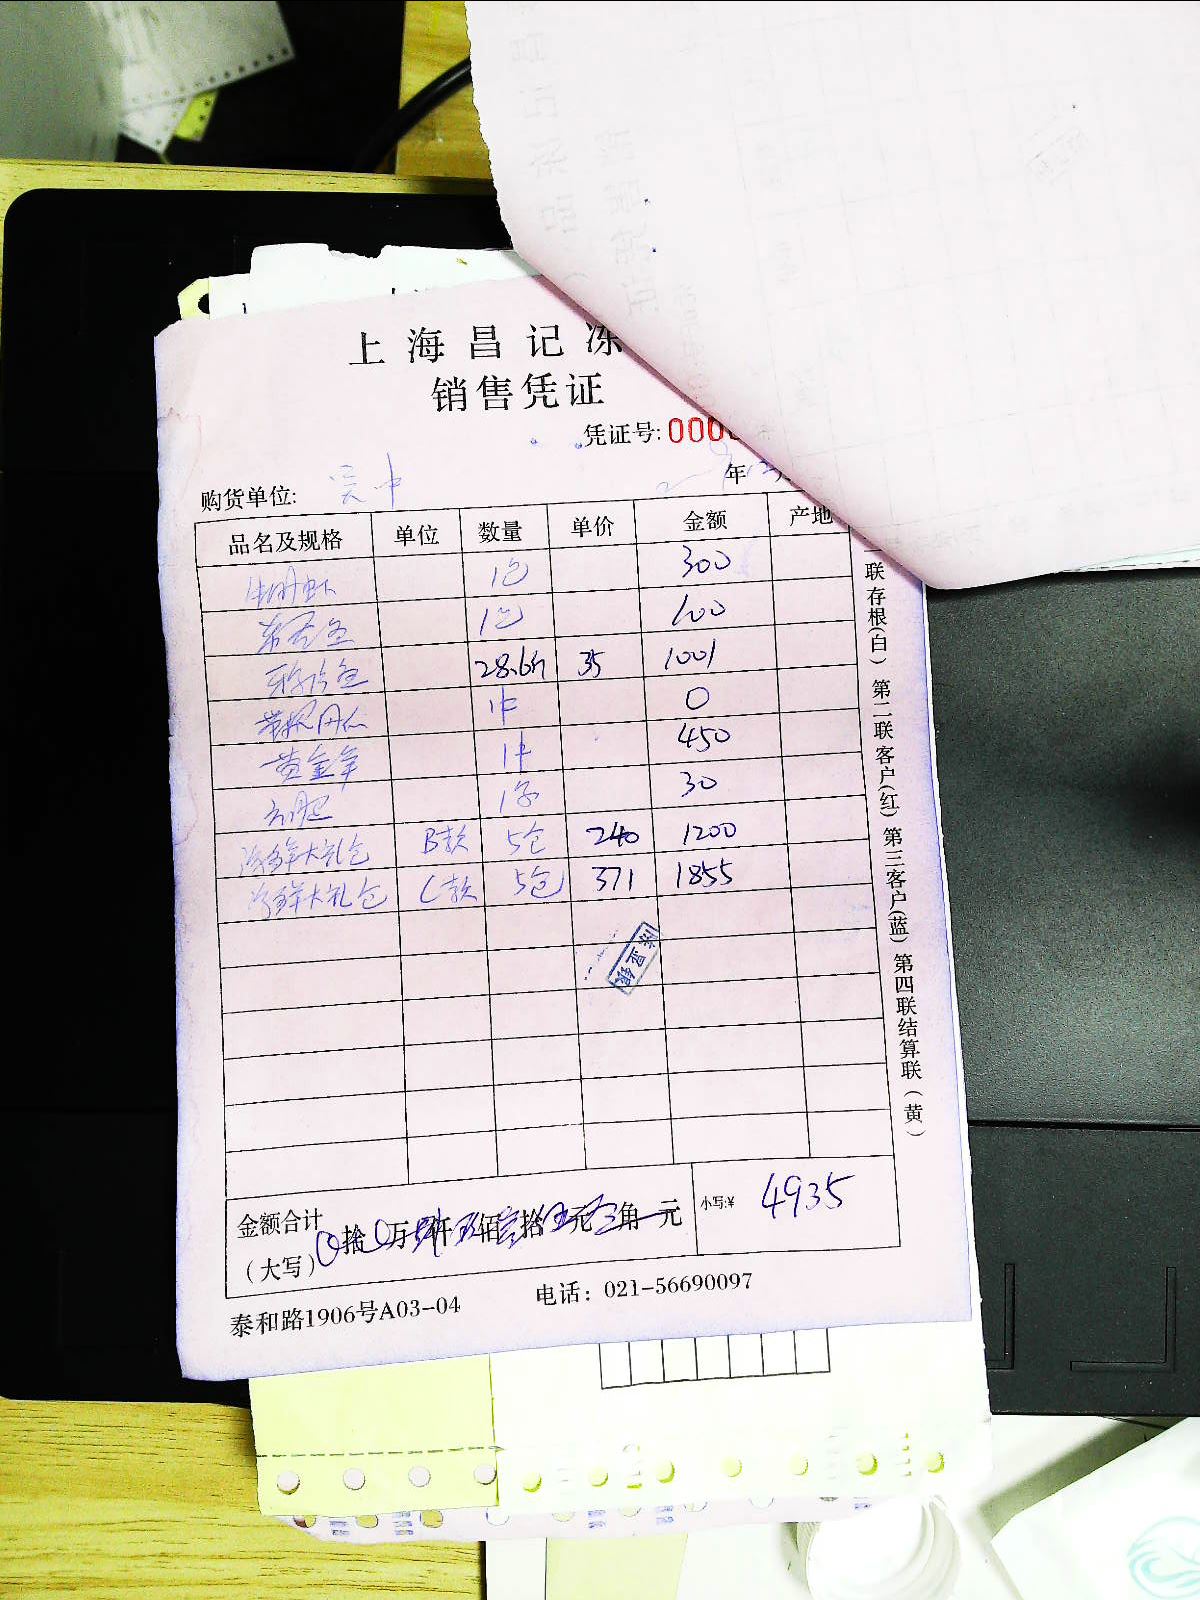 上海昌记冻
销售凭证
凭证号: 000
购货单位: 吴中 年12月
品名及规格 单位 数量 单价 金额 产地
1包 300
1包 100
28.6斤 35 1001
1件 0
黄金羊 1件 450
30
海鲜大礼包 B款 5包 240 1200
海鲜大礼包 C款 5包 371 1855
金额合计
(大写) 0拾0万肆仟 佰叁拾伍元 角 元 小写:¥ 4935
泰和路1906号A03-04 电话: 021-56690097
联存根(白) 第二联客户(红) 第三客户(蓝) 第四联结算联(黄)